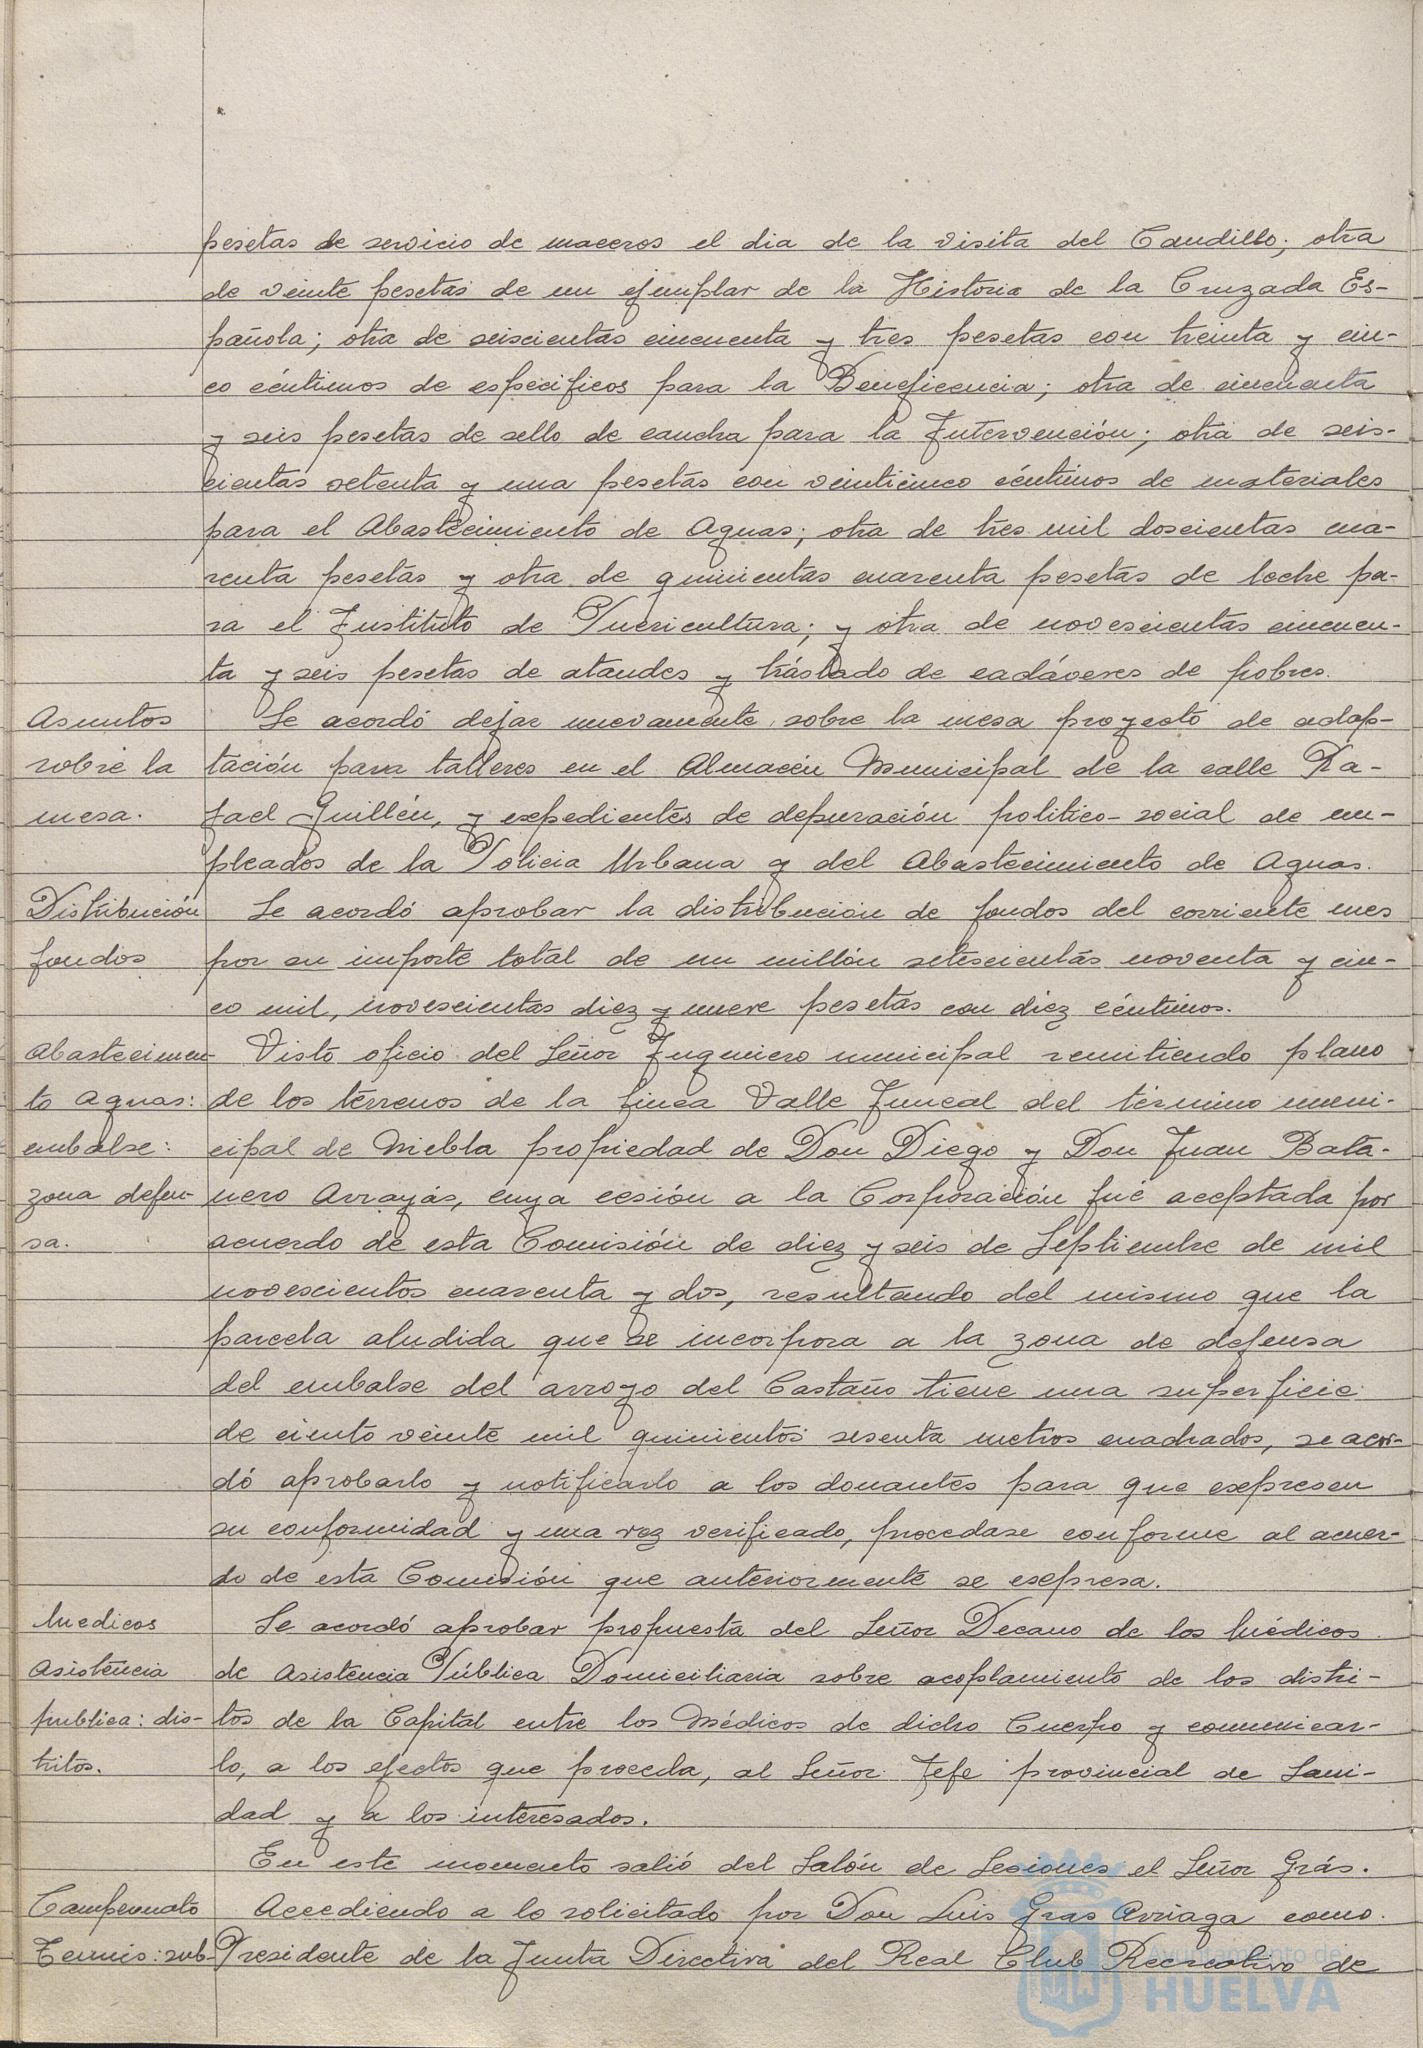 pesetas de servicio de maceros el dia de la visita del Caudillo; otra
de veinte pesetas de un ejemplar de la Historia de la Cruzada Es-
pañola; otra de seiscientas cincuenta y tres pesetas con treinta y cin-
co céntimos de especificos para la Beneficencia; otra de cincuenta
y seis pesetas de sello de caucho para la Intervención; otra de seis-
cientas setenta y una pesetas con veinticinco céntimos de materiales
para el Abastecimiento de Aguas; otra de tres mil doscientas cua-
renta pesetas y otra de quinientas cuarenta pesetas de leche pa-
ra el Instituto de Puericultura; y otra de novescientas cincuen-
ta y seis pesetas de ataudes y tráslado de cadáveres de pobres.
Asuntos sobre la mesa.
Se acordó dejar nuevamente sobre la mesa proyecto de adap-
tación para talleres en el Almacén Municipal de la calle Ra-
fael Guillén, y expedientes de depuración politico-social de em-
pleados de la Policia Urbana y del Abastecimiento de Aguas.
Distribución fondos
Se acordó aprobar la distribucion de fondos del corriente mes
por su importe total de un millón setescientas noventa y cin-
co mil, novescientas diez y nueve pesetas con diez céntimos.
Abastecimien-
to Aguas:
embalse:
zona defen-
sa.
Visto oficio del Señor Ingeniero municipal remitiendo plano
de los terrenos de la finca Valle Juncal del término muni-
cipal de Niebla propiedad de Don Diego y Don Juan Bata-
nero Arrayás, cuya cesión a la Corporación fué aceptada por
acuerdo de esta Comisión de diez y seis de Septiembre de mil
novescientos cuarenta y dos, resultando del mismo que la
parcela aludida que se incorpora a la zona de defensa
del embalse del arroyo del Castaño tiene una superficie
de ciento veinte mil quinientos sesenta metros cuadrados, se acor-
dó aprobarlo y notificarlo a los donantes para que expresen
su conformidad y una vez verificado, procedase conforme al acuer-
do de esta Comisión que anteriormente se expresa.
Medicos
Asistencia
publica: dis-
tritos.
Se acordó aprobar propuesta del Señor Decano de los Médicos
de Asistencia Pública Domiciliaria sobre acoplamiento de los distri-
tos de la Capital entre los Médicos de dicho Cuerpo y comunicar-
lo, a los efectos que proceda, al Señor Jefe provincial de Sani-
dad y a los interesados.
En este momento salió del Salón de Sesiones el Señor Grás.
Campeonato
Tennis: sub-
Accediendo a lo solicitado por Don Luis Gras Arriaga como
Presidente de la Junta Directiva del Real Club Recreativo de
Ayuntamiento de
HUELVA